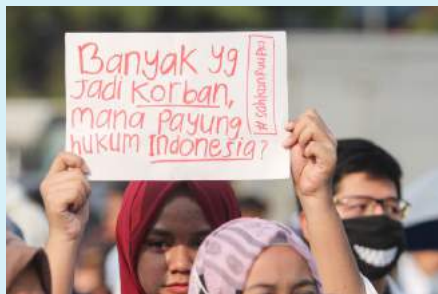 Banyak yg
Jadi korban,
mana payung
hukum Indonesia?
#sahkanruupks